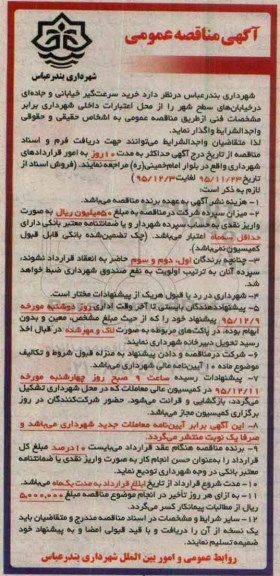 آگهی مناقصه عمومی
شهرداری بندرعباس
شهرداری بندرعباس درنظر دارد خرید سرعت‌گیر خیابانی و جاده‌ای
درخیابان‌های سطح شهر را از محل اعتبارات داخلی شهرداری برابر
مشخصات فنی ازطریق مناقصه عمومی به اشخاص حقیقی و حقوقی
واجدالشرایط واگذار نماید.
لذا متقاضیان واجدالشرایط می‌توانند جهت دریافت فرم و اسناد
مناقصه از تاریخ درج آگهی حداکثر به مدت ۱۰روز به امور قراردادهای
شهرداری واقع در بلوار امام‌خمینی(ره) مراجعه نمایند. (فروش اسناد از
تاریخ ۹۵/۱۱/۲۳ لغایت ۹۵/۱۲/۳)
لازم به ذکر است:
۱- هزینه نشر آگهی به عهده برنده مناقصه می‌باشد.
۲- میزان سپرده شرکت درمناقصه به مبلغ ۵۰میلیون ریال به صورت
واریز نقدی به حساب سپرده شهردار و یا ضمانتنامه معتبر بانکی دارای
حداقل اعتبار می‌باشد. (چک تضمین‌شده بانکی قابل قبول
نمی‌باشد).
۳- چنانچه برندگان اول، دوم و سوم حاضر به انعقاد قرارداد نشوند،
سپرده آنان به ترتیب اولویت به نفع صندوق شهرداری ضبط خواهد
شد.
۴- شهرداری در رد یا قبول هریک از پیشنهادات مختار است.
۵- پیشنهاددهندگان بایستی تا آخر وقت اداری روز دوشنبه مورخه
۹۵/۱۲/۹ پیشنهاد خود را که از حیث مبلغ مشخص، معین و بدون
ابهام بوده، در پاکت‌های مربوطه به صورت لاک و مهرشده در قبال اخذ
رسید تحویل دبیرخانه شهرداری نمایند.
۶- شرکت در مناقصه و دادن پیشنهاد به منزله قبول شروط و تکالیف
موضوع ماده ۱۰ آیین‌نامه مالی شهرداری می‌باشد.
۷- پیشنهادات رسیده ساعت ۹ صبح روز چهارشنبه مورخه
۹۵/۱۲/۱۱ در کمیسیون عالی معاملات که در محل شهرداری تشکیل
می‌گردد، بازگشایی و قرائت می‌شود. حضور شرکت‌کنندگان در روز
برگزاری کمیسیون مجاز می‌باشد.
۸- این آگهی برابر آیین‌نامه معاملات جدید شهرداری می‌باشد و
صرفا یک نوبت منتشر می‌گردد.
۹- برنده مناقصه هنگام عقد قرارداد می‌بایست ۱۰درصد مبلغ کل
قرارداد را به‌عنوان حسن انجام کار به صورت واریز نقدی یا ضمانتنامه
معتبر بانکی در وجه شهرداری تودیع نماید.
۱۰- مدت شروع قرارداد از تاریخ ابلاغ قرارداد به مدت یک‌ماه می‌باشد.
۱۱- به ازای هر روز تأخیر در انجام موضوع مناقصه مبلغ ۵,۰۰۰,۰۰۰
ریال از مطالبات پیمانکار کسر می‌گردد.
۱۲- سایر شرایط و مشخصات در اسناد مناقصه مندرج و متقاضیان باید
یک نسخه از آن را دریافت و با قید قبولی امضا و به پیشنهاد خود
ضمیمه تسلیم نمایند.
روابط عمومی و امور بین الملل شهرداری بندرعباس